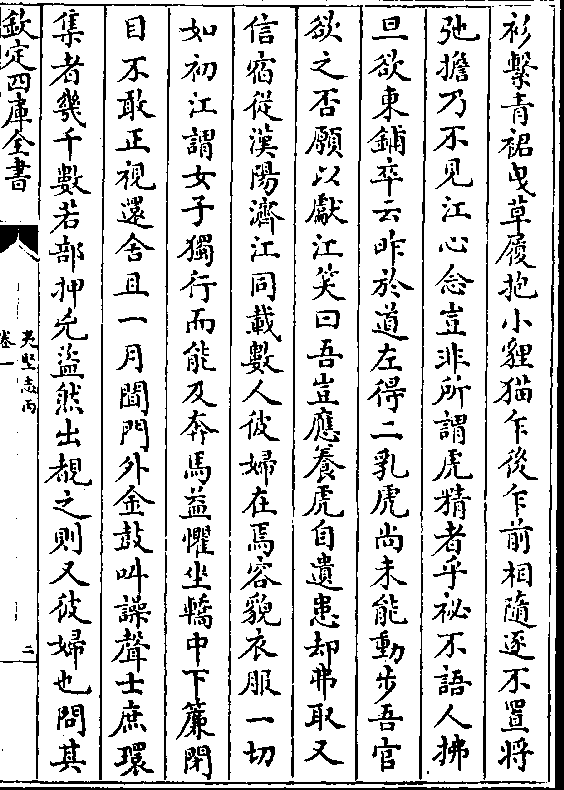 衫繫青裙曳草履抱小貍猫乍後乍前相隨逐不置將
弛擔乃不見江心念豈非所謂虎精者乎祕不語人拂
旦欲東鋪卒云昨於道左得二乳虎尚未能動步吾官
欲之否願以獻江笑曰吾豈應養虎自遺患却弗取又
信宿從漢陽濟江同載數人彼婦在焉容貌衣服一切
如初江謂女子獨行而能及奔馬益懼坐轎中下簾閉
目不敢正視還舍且一月聞門外金鼓叫譟聲士庶環
集者幾千數若部押兇盜然出覘之則又彼婦也問其
欽定四庫全書
夷堅志丙
卷一
二